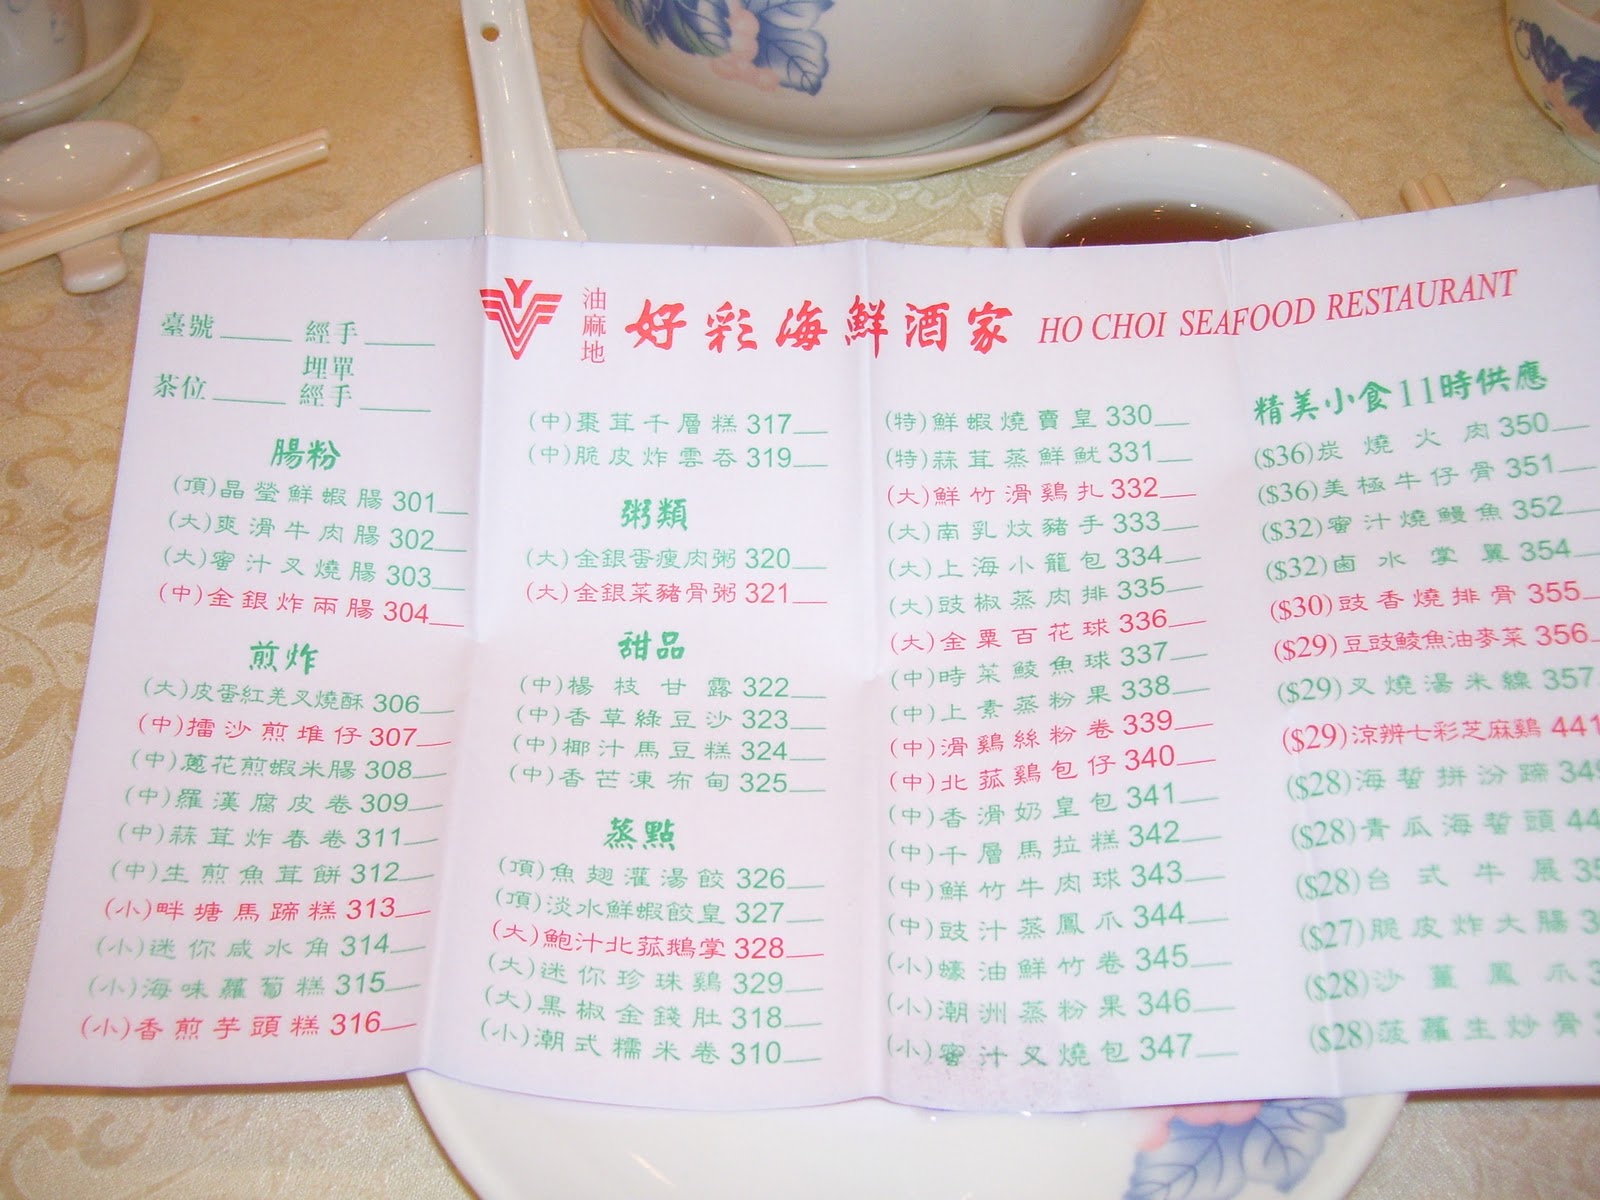 臺號 經手
埋單
茶位 經手
油麻地
好彩海鮮酒家 HO CHOI SEAFOOD RESTAURANT
腸粉
(頂)晶瑩鮮蝦腸 301
(大)爽滑牛肉腸 302
(大)蜜汁叉燒腸 303
(中)金銀炸兩腸 304
煎炸
(大)皮蛋紅羌叉燒酥 306
(中)擂沙煎堆仔 307
(中)蔥花煎蝦米腸 308
(中)羅漢腐皮卷 309
(中)蒜茸炸春卷 311
(中)生煎魚茸餅 312
(小)畔塘馬蹄糕 313
(小)迷你咸水角 314
(小)海味蘿蔔糕 315
(小)香煎芋頭糕 316
(中)棗茸千層糕 317
(中)脆皮炸雲吞 319
粥類
(大)金銀蛋瘦肉粥 320
(大)金銀菜豬骨粥 321
甜品
(中)楊枝甘露 322
(中)香草綠豆沙 323
(中)椰汁馬豆糕 324
(中)香芒凍布甸 325
蒸點
(頂)魚翅灌湯餃 326
(頂)淡水鮮蝦餃皇 327
(大)鮑汁北菰鵝掌 328
(大)迷你珍珠雞 329
(大)黑椒金錢肚 318
(小)潮式糯米卷 310
(特)鮮蝦燒賣皇 330
(特)蒜茸蒸鮮魷 331
(大)鮮竹滑雞扎 332
(大)南乳炆豬手 333
(大)上海小籠包 334
(大)豉椒蒸肉排 335
(大)金粟百花球 336
(中)時菜鯪魚球 337
(中)上素蒸粉果 338
(中)滑雞絲粉卷 339
(中)北菰雞包仔 340
(中)香滑奶皇包 341
(中)千層馬拉糕 342
(中)鮮竹牛肉球 343
(中)豉汁蒸鳳爪 344
(小)蠔油鮮竹卷 345
(小)潮洲蒸粉果 346
(小)蜜汁叉燒包 347
精美小食11時供應
($36)炭燒火肉 350
($36)美極牛仔骨 351
($32)蜜汁燒鰻魚 352
($32)鹵水掌翼 354
($30)豉香燒排骨 355
($29)豆豉鯪魚油麥菜 356
($29)叉燒湯米線 357
($29)涼辦七彩芝麻雞 441
($28)海蜇拼汾蹄 34
($28)青瓜海蜇頭 44
($28)台式牛展 35
($27)脆皮炸大腸 3
($28)沙薑鳳爪
($28)菠蘿生炒骨